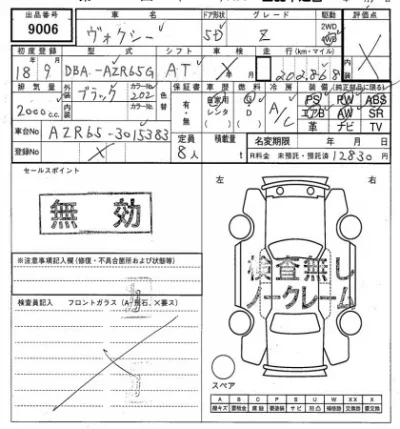 出品番号 車名 ドア形状 グレード 駆動 評価点
9006 ヴォクシー 5D Z 2WD 4WD
初度登録 型式 シフト 車検 走行(km・マイル) 内装
18 9 DBA-AZR65G AT 年 月 202,868
排気量 外装 ブラック カラーNo. 202 保証書 車歴 燃料 冷房 装備(純正部品に限る)
2000 c.c. 内装 カラーNo. 有・無 自家用 レンタ ( ) G D ( ) A/C PS RW ABS
エアB AW SR
革 ナビ TV
車台No AZR65-3015383 定員 積載量 名変期限 年 月 日
登録No 8人 t R料金 未預託・預託済 12830 円
セールスポイント
無効
左 右
※注意事項記入欄(修復・不具合箇所および状態等)
検査員記入 フロントガラス(A・飛石、×要ス)
検査無し
ノークレーム
スペア
A B C P S U W XX X